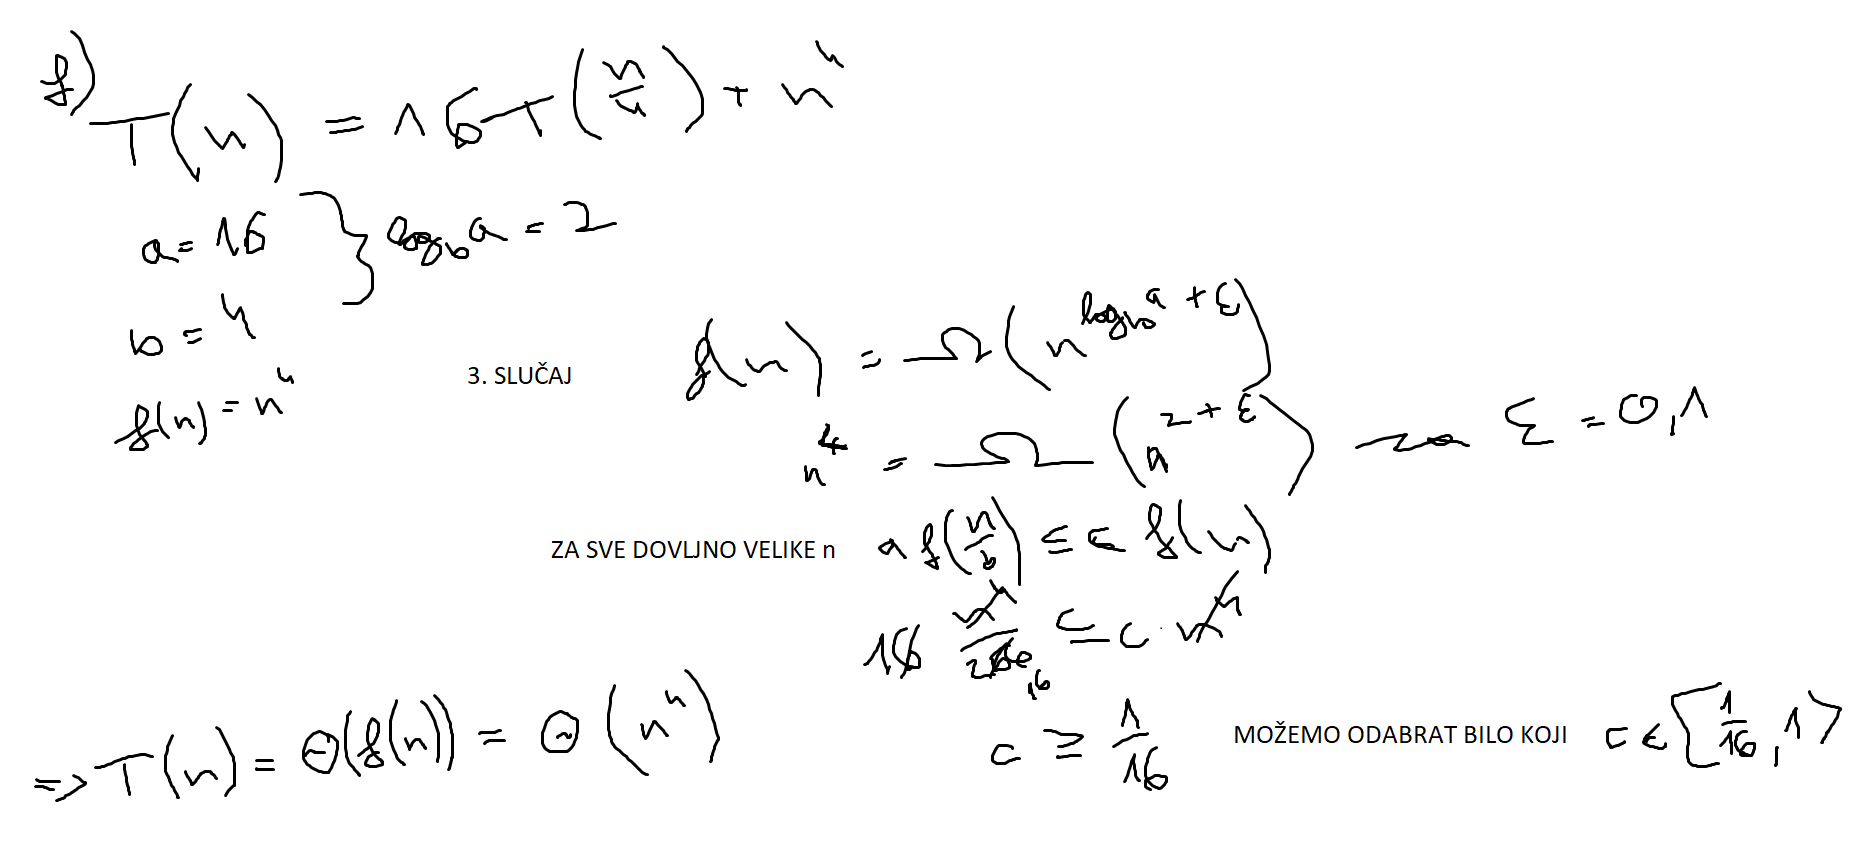 f) T(n) = 16T(n/4) + n^4
a = 16 } log_b a = 2
b = 4
f(n) = n^4
3. SLUČAJ f(n) = Ω(n^(log_b a + ε))
n^4 = Ω(n^(2+ε)) ~ ε = 0,1
ZA SVE DOVLJNO VELIKE n a f(n/b) ≤ c f(n)
16 n^4/256 16 ≤ c · n^4
c ≥ 1/16 MOŽEMO ODABRAT BILO KOJI c ∈ [1/16, 1⟩
=> T(n) = Θ(f(n)) = Θ(n^4)